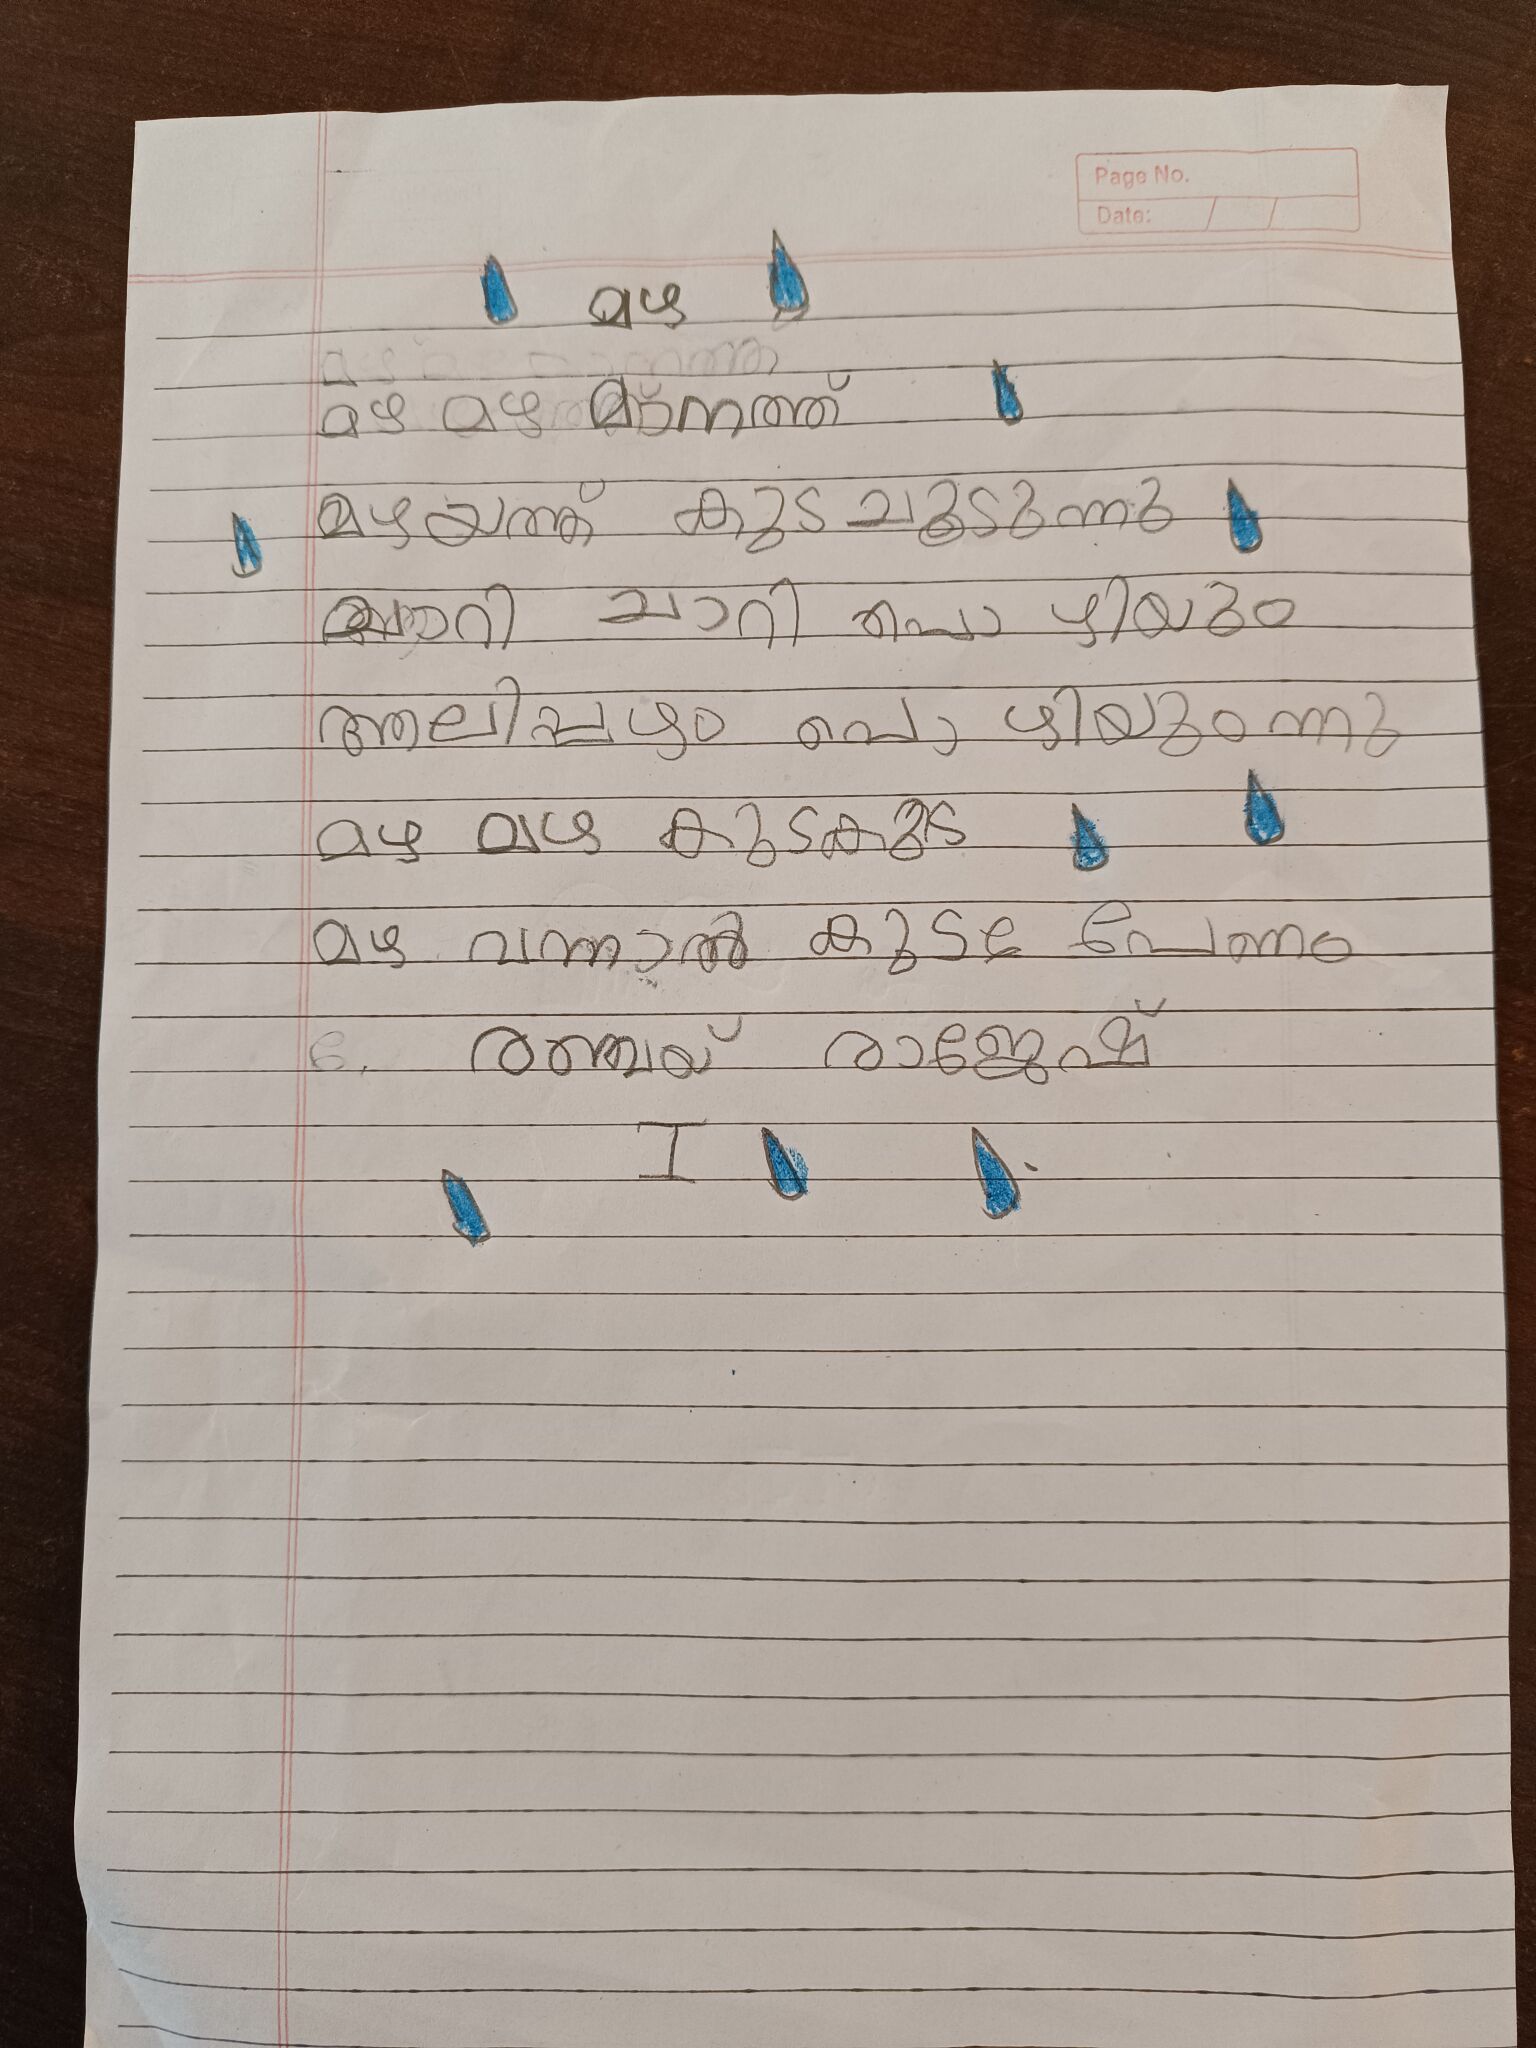 Page No.
Date: / /
മഴ
മഴ മഴ മാനത്ത്
മഴയത്ത് കുട ചൂടുന്നു
ചാറി ചാറി പൊഴിയും
ആലിപ്പഴം പൊഴിയുംന്നു
മഴ മഴ കുടകുട
മഴ വന്നാൽ കുട പേണം
രാജേഷ്
I